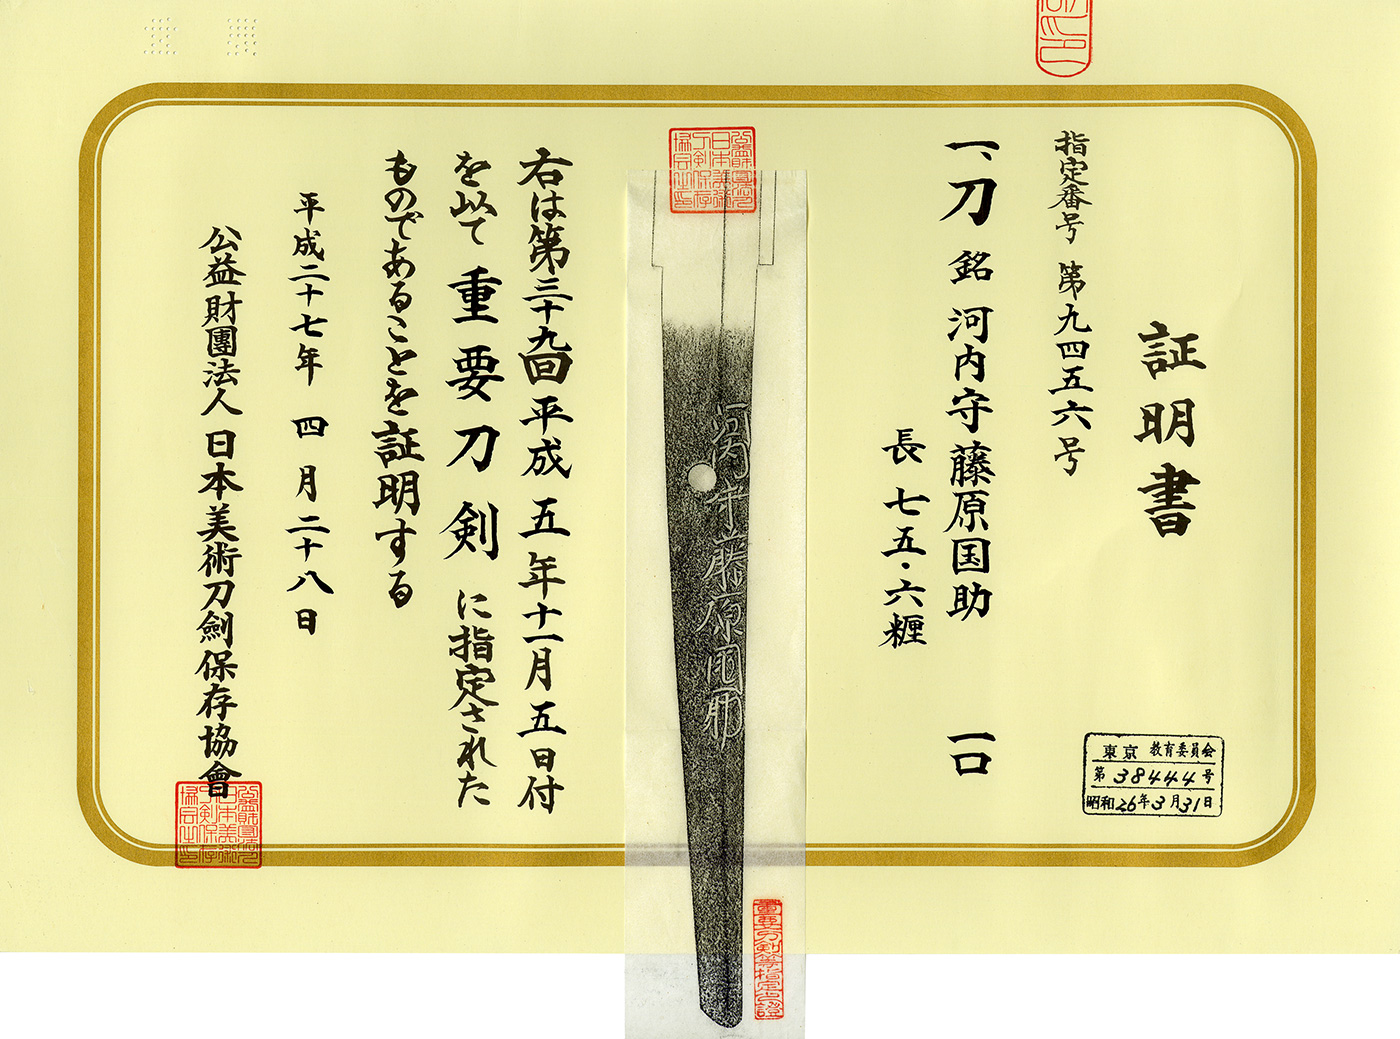 証明書
指定番号 第九四五六号
一、刀 銘 河内守藤原国助 一口
長 七五・六糎
東京 教育委員会
第38444号
昭和26年3月31日
河内守藤原国助
右は第三十九回平成五年十一月五日付
を以て重要刀剣に指定された
ものであることを証明する
平成二十七年 四月二十八日
公益財團法人日本美術刀劍保存協會
重要刀剣等指定之證